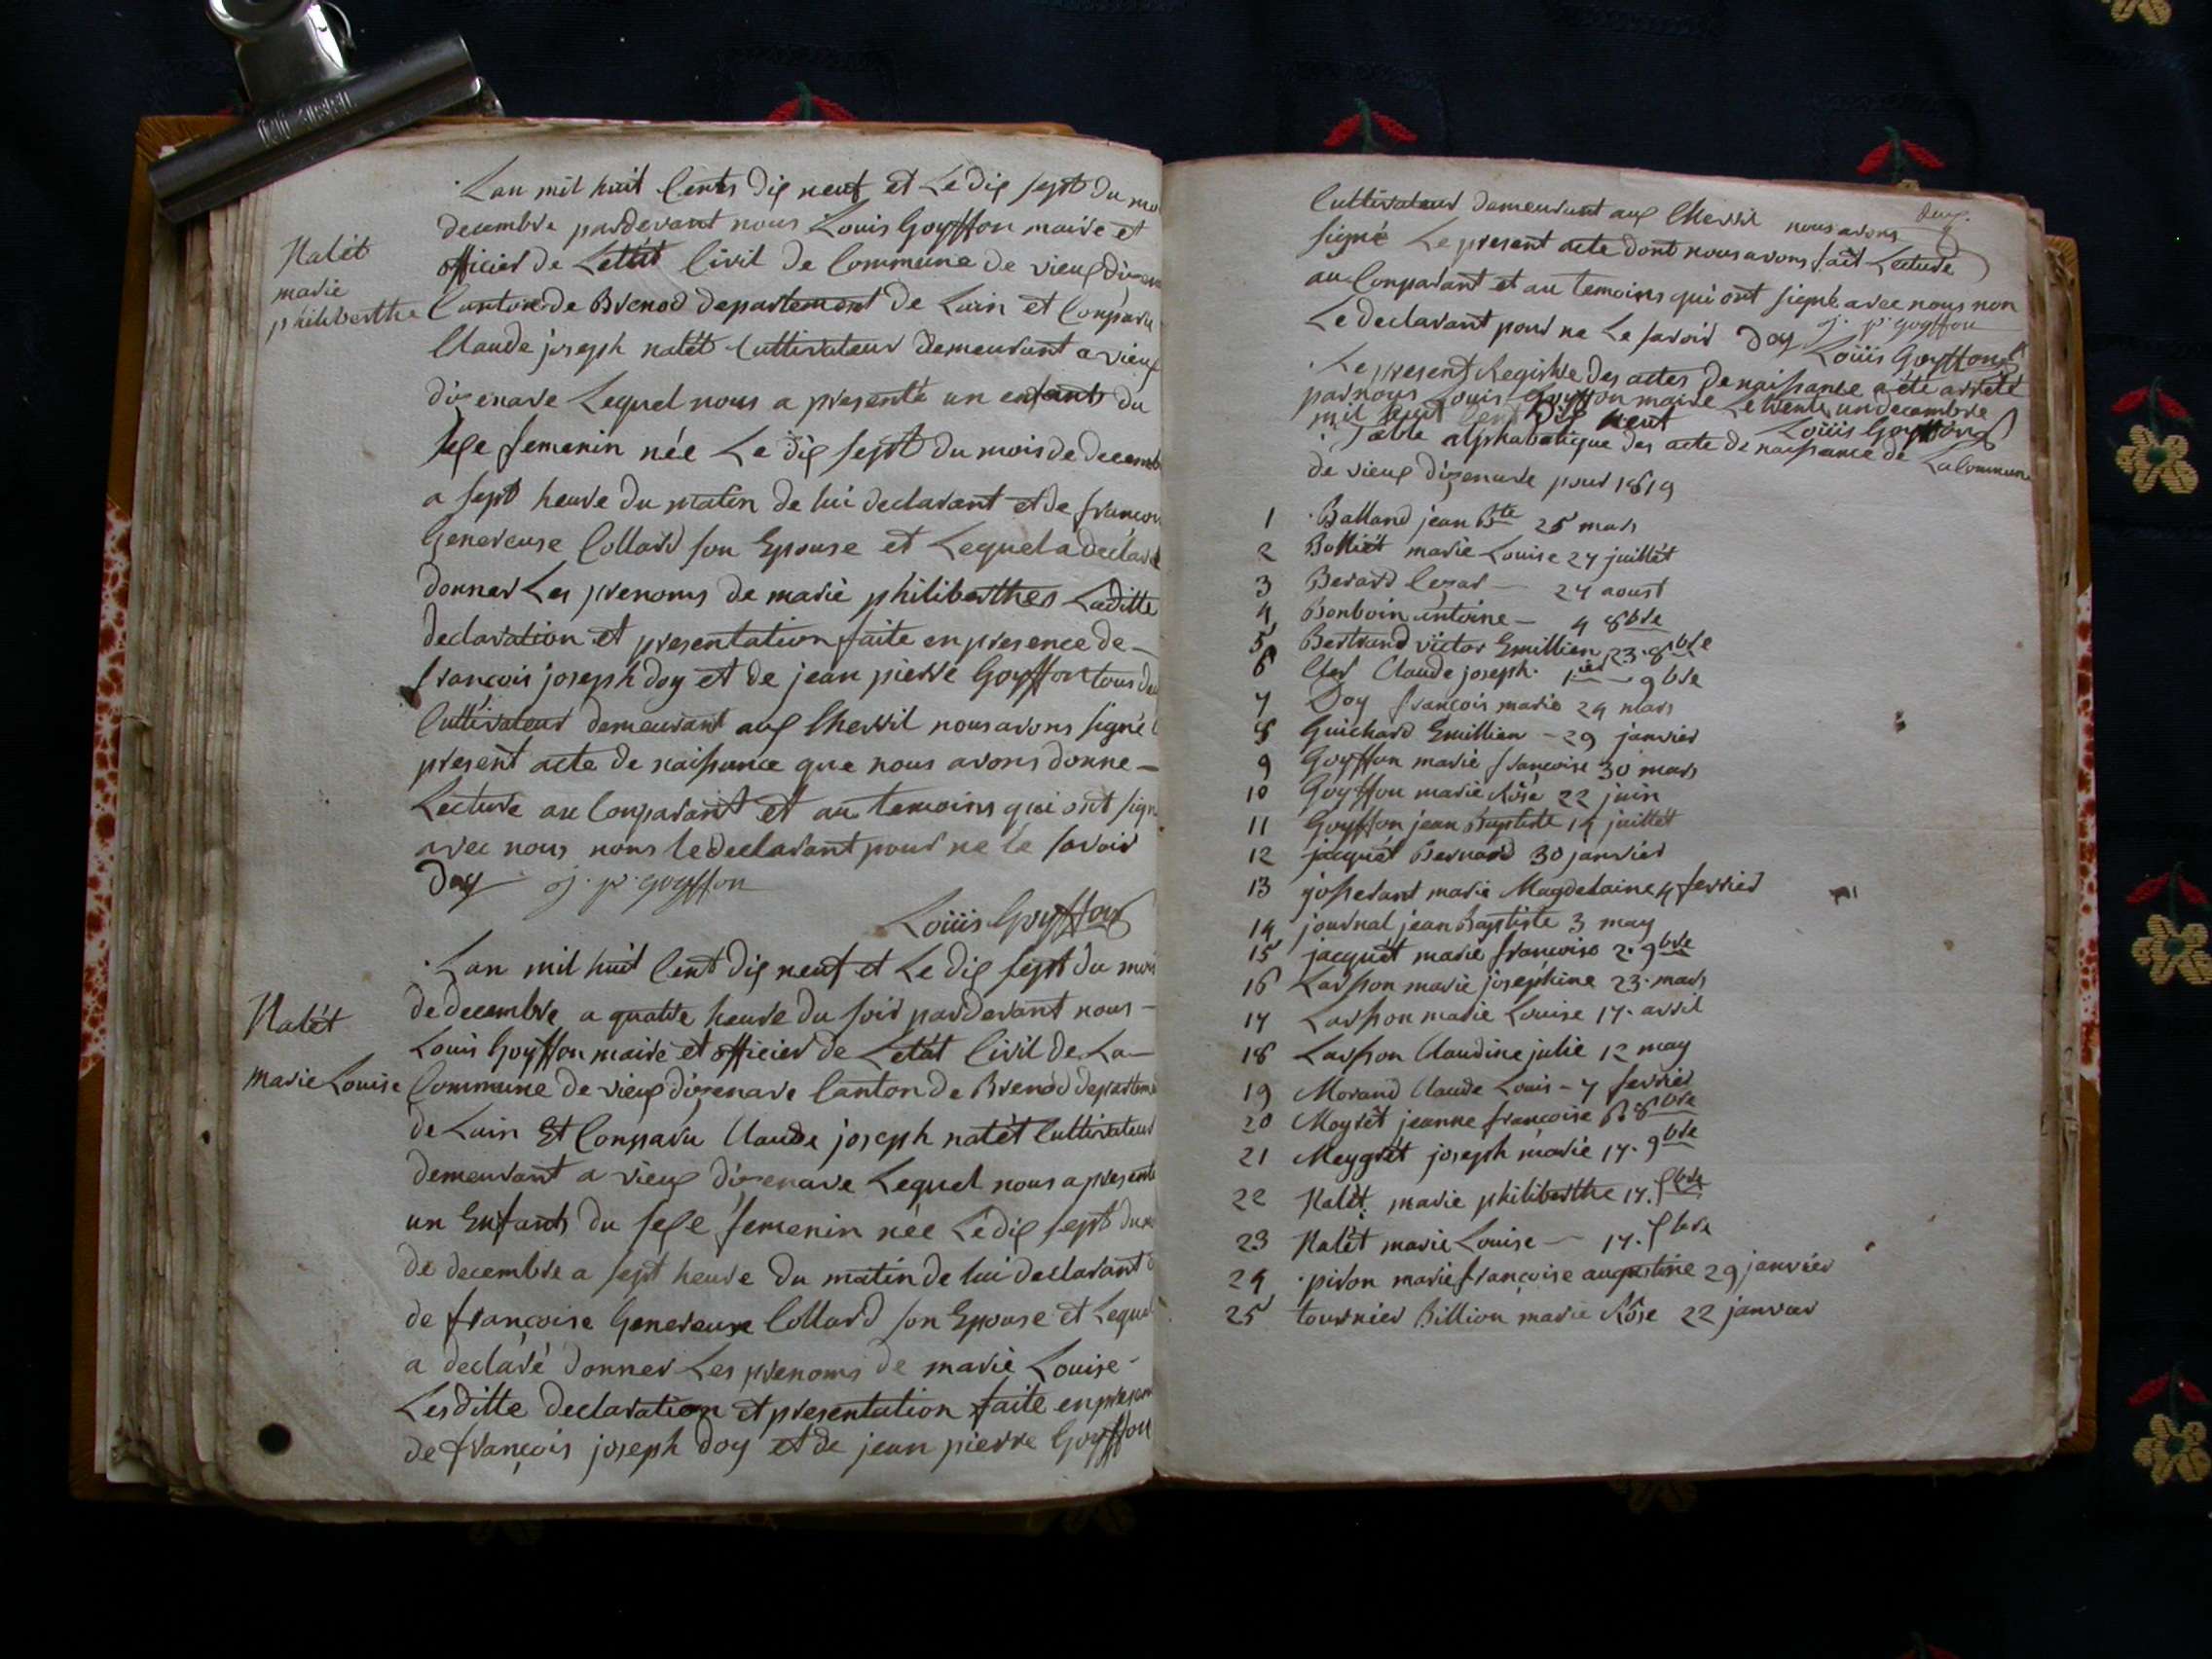 Lan mil huit Cents dix neuf et Le dix sept du moi
decembre pardevant nous Louis Goyffon maire et
officier de Lettât Civil de Commune de vieux dizena
Canton de Brenod departement de Lain et Comparu
Claude joseph nalét Cultivateur demeurant a vieux
dizenave Lequel nous a presenté un enfants du
sexe femenin née Le dix sept du mois de decemb
a sept heure du matin de lui declarant et de françois
Genereuse Collard son Epouse et Lequel a declaré
donner Les prenoms de marie philiberthes Laditte
declaration et presentation faite en presence de
françois joseph doy et de jean pierre Goyffon tous deu
Cultivateur demeurant aux Chevril nous avons signé l
present acte de naissance que nous avons donne
Lecture au Comparant et au temoins qui ont sign
avec nous nons le declarant pour ne le savoir
Doy j. p. goyffon
Louis Goyffon
Nalét
marie
philiberthe
Lan mil huit Cent dix neuf et Le dix sept du moi
de decembre a quatre heure du soir pardevant nous
Louis Goyffon maire et officier de Letât Civil de La
Commune de vieux dizenave Canton de Brenod departeme
de Lain Et Comparu Claude joseph nalét Cultivateur
demeurant a vieux dizenave Lequel nous a presenté
un Enfants du sexe femenin née Le dix sept du m
de decembre a sept heure du matin de lui declarant e
de françoise Genereuse Collard son Epouse et Leque
a declaré donner Les prenoms de marie Louise
Lesditte declaration et presentation faite en presen
de françois joseph doy et de jean pierre Goyffon
Nalét
Marie Louise
Cultivateur demeurant aux Chevril nous avons
signé Le present acte dont nous avons fait Lecture
au Comparant et au temoins qui ont signé avec nous non
Le declarant pour ne Le savoir Doy j. p. goyffon
Louis Goyffon
Le present Registre des actes de naissance a été arreté
par nous Louis Goyffon maire Le trente un decembre
mil huit Cent Dix neuf Louis Goyffon
Table alphabatique des acte de naissance de La Commune
de vieux dizenave pour 1819
1 Balland jean Bte 25 mars
2 Bolliét marie Louise 27 juillét
3 Berard Cezar 27 aoust
4 Bonboin antoine 4 8bre
5 Bertrand victor Emillien 23. 8bre
6 Cler Claude joseph. 1ier 9bre
7 Doy françois marie 29 mars
8 Guichard Emillien 29 janvier
9 Goyffon marie françoise 30 mars
10 Goyffon marie Rôse 22 juin
11 Goyffon jean Baptiste 14 juillét
12 jacquét Bernard 30 janvier
13 josserant marie Magdelaine 4 fevrier
14 journal jean Baptiste 3 may
15 jacquét marie françoise 2. 9bre
16 Lasson marie josephine 23. mars
17 Lasson marie Louise 17. avril
18 Lasson Claudine julie 12 may
19 Morand Claude Louis 7 fevrier
20 Meyrét jeanne françoise 8bre
21 Meygrét joseph marie 17. 9bre
22 Nalét. marie philiberthe 17. Xbre
23 Nalét marie Louise 17. Xbre
24 piron marie françoise augustine 29 janvier
25 tournier Billion marie Rôse 22 janvier